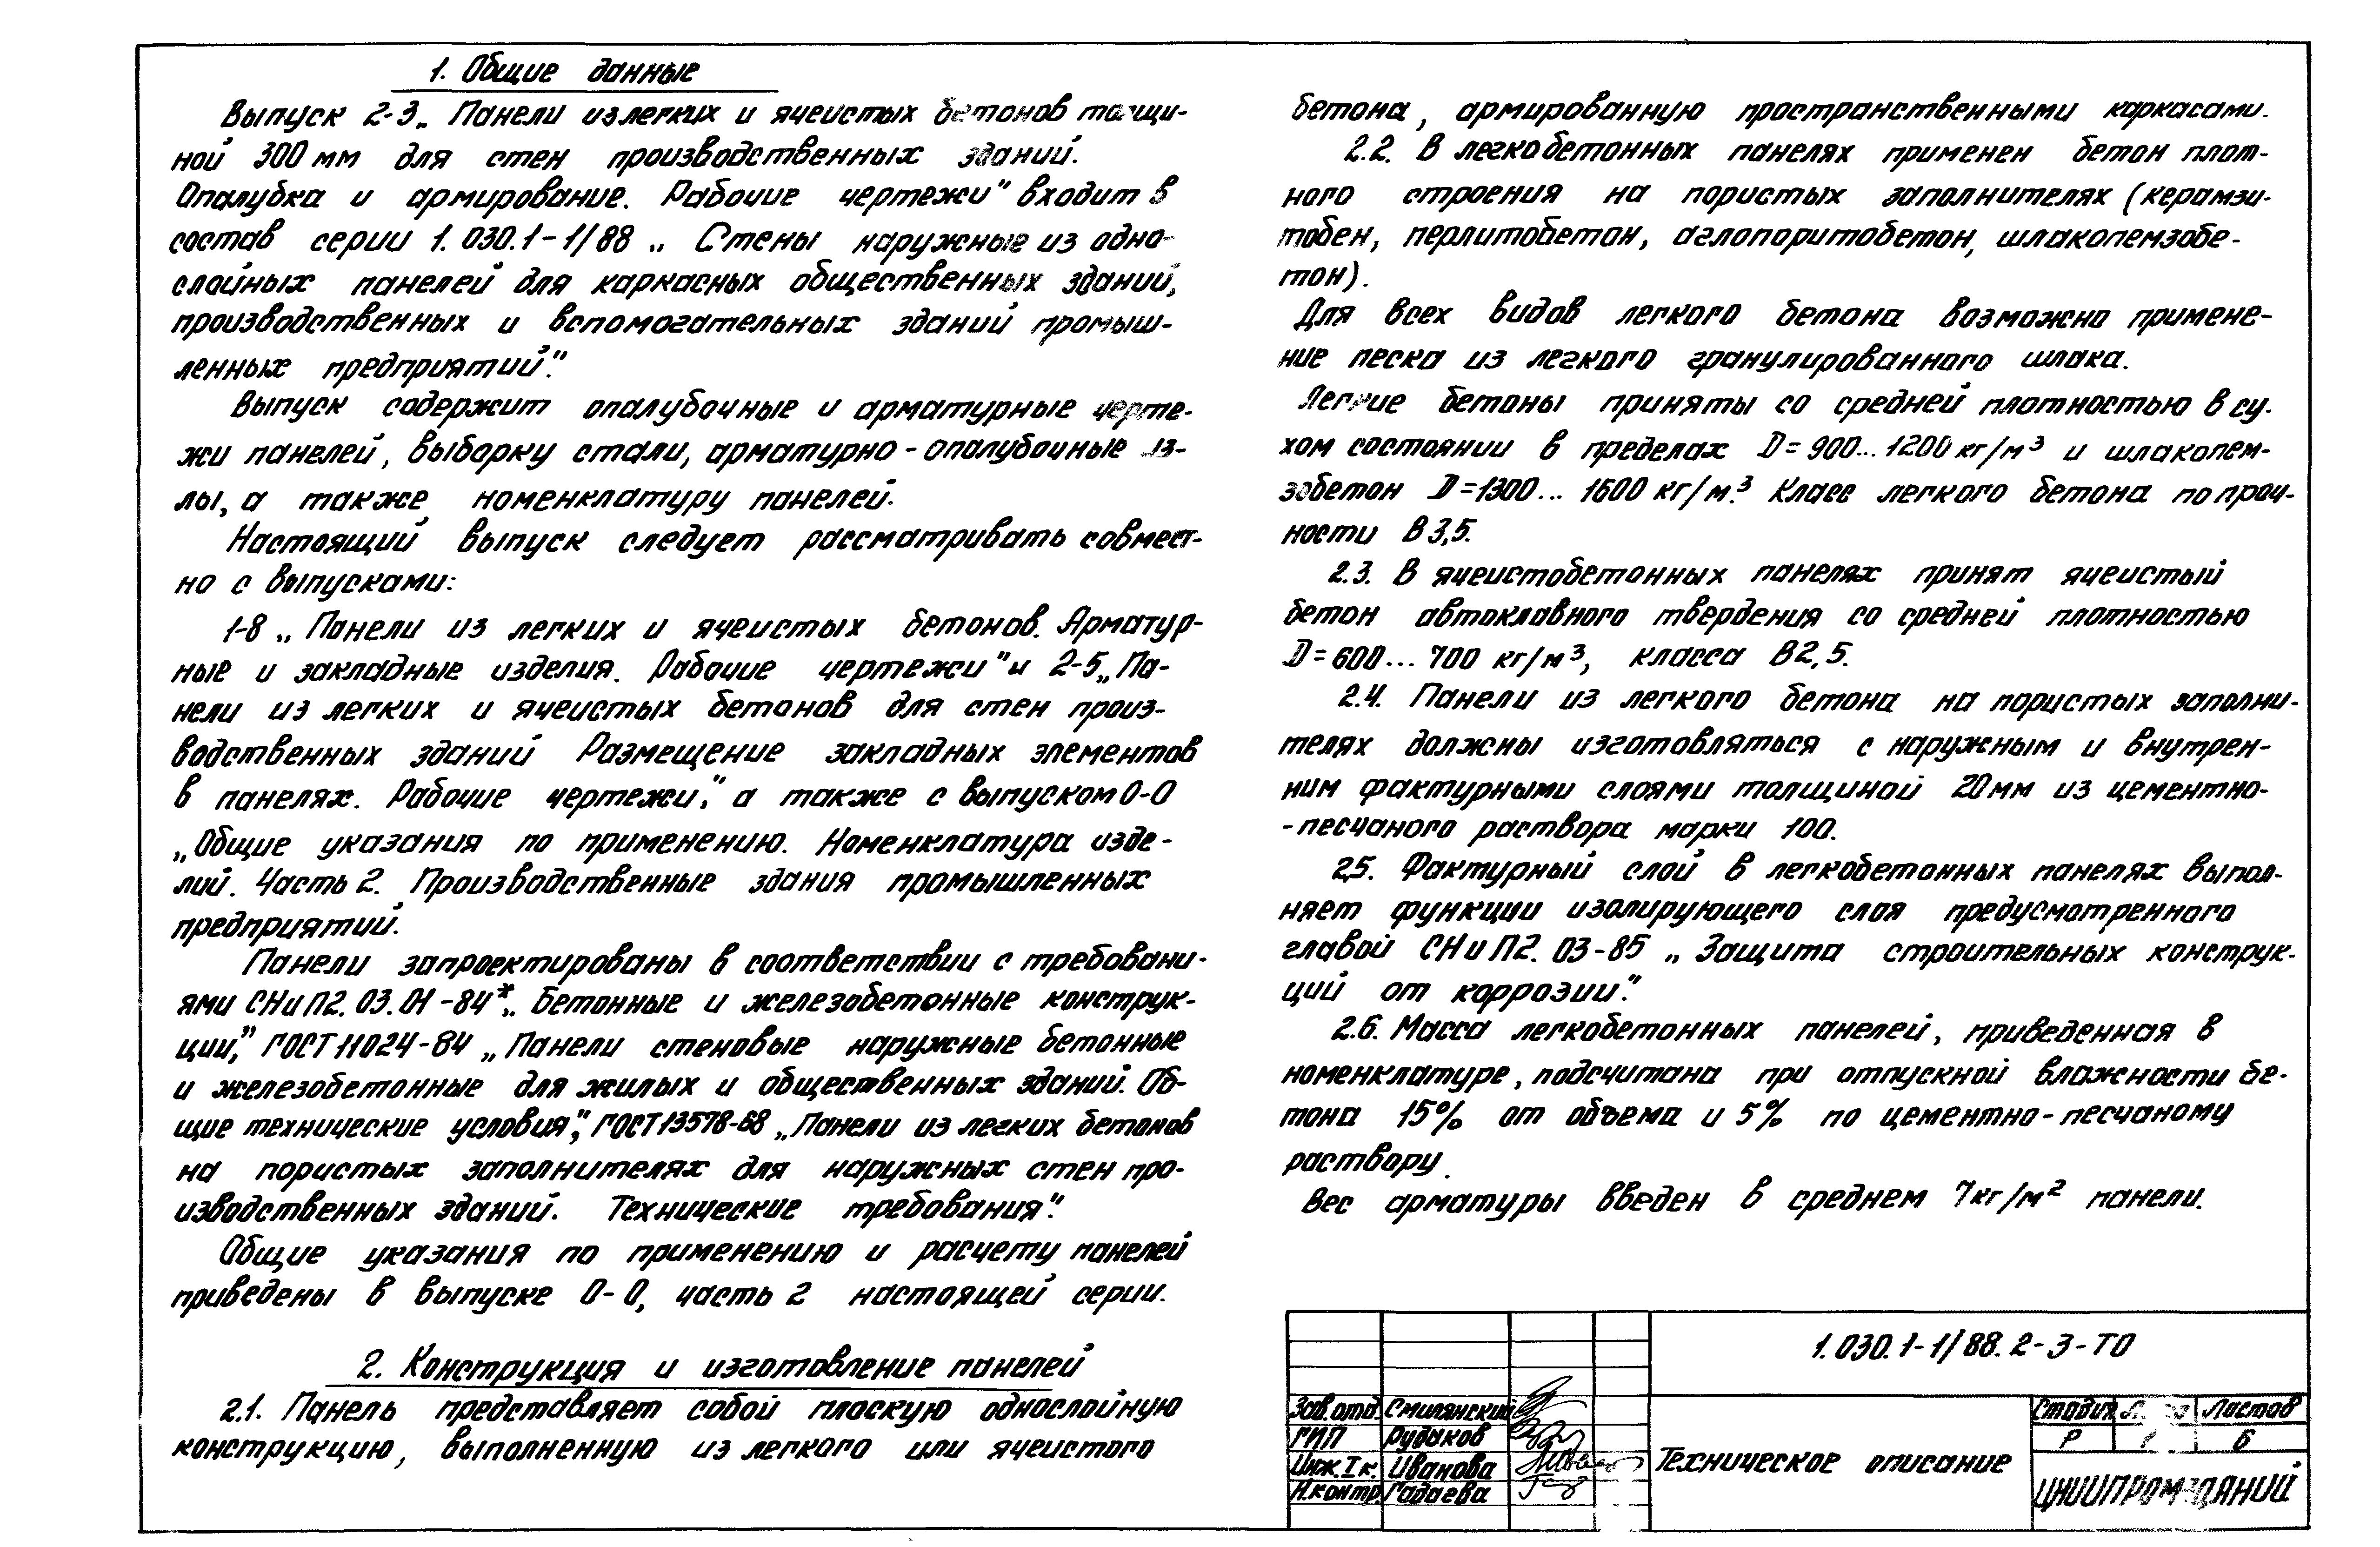 1. Общие данные
Выпуск 2-3 „Панели из легких и ячеистых бетонов толщи-
ной 300 мм для стен производственных зданий.
Опалубка и армирование. Рабочие чертежи" входит в
состав серии 1.030.1-1/88 „Стены наружные из одно-
слойных панелей для каркасных общественных зданий,
производственных и вспомогательных зданий промыш-
ленных предприятий".
Выпуск содержит опалубочные и арматурные черте-
жи панелей, выборку стали, арматурно-опалубочные уз-
лы, а также номенклатуру панелей.
Настоящий выпуск следует рассматривать совмест-
но с выпусками:
1-8 „Панели из легких и ячеистых бетонов. Арматур-
ные и закладные изделия. Рабочие чертежи" и 2-5 „Па-
нели из легких и ячеистых бетонов для стен произ-
водственных зданий Размещение закладных элементов
в панелях. Рабочие чертежи", а также с выпуском 0-0
„Общие указания по применению. Номенклатура изде-
лий. Часть 2. Производственные здания промышленных
предприятий.
Панели запроектированы в соответствии с требовани-
ями СНиП2.03.01-84* „Бетонные и железобетонные конструк-
ции", ГОСТ 11024-84 „Панели стеновые наружные бетонные
и железобетонные для жилых и общественных зданий. Об-
щие технические условия", ГОСТ 13578-68 „Панели из легких бетонов
на пористых заполнителях для наружных стен про-
изводственных зданий. Технические требования".
Общие указания по применению и расчету панелей
приведены в выпуске 0-0, часть 2 настоящей серии.
2. Конструкция и изготовление панелей
2.1. Панель представляет собой плоскую однослойную
конструкцию, выполненную из легкого или ячеистого
бетона, армированную пространственными каркасами.
2.2. В легкобетонных панелях применен бетон плот-
ного строения на пористых заполнителях (керамзи-
тобен, перлитобетон, аглопоритобетон, шлакопемзобе-
тон).
Для всех видов легкого бетона возможно примене-
ние песка из легкого гранулированного шлака.
Легкие бетоны приняты со средней плотностью в су-
хом состоянии в пределах D=900...1200 кг/м³ и шлакопем-
зобетон D=1300... 1600 кг/м.³ Класс легкого бетона по проч-
ности В3,5.
2.3. В ячеистобетонных панелях принят ячеистый
бетон автоклавного твердения со средней плотностью
D=600... 700 кг/м³, класса В2,5.
2.4. Панели из легкого бетона на пористых заполни-
телях должны изготовляться с наружным и внутрен-
ним фактурными слоями толщиной 20мм из цементно-
-песчаного раствора марки 100.
2.5. Фактурный слой в легкобетонных панелях выпол-
няет функции изолирующего слоя предусмотренного
главой СНиП2.03-85 „Защита строительных конструк-
ций от коррозии".
2.6. Масса легкобетонных панелей, приведенная в
номенклатуре, подсчитана при отпускной влажности бе-
тона 15% от объема и 5% по цементно-песчаному
раствору.
Вес арматуры введен в среднем 7кг/м² панели.
1.030.1-1/88.2-3-ТО
Зав.отд. Смилянский
ГИП Рудаков
Инж.I к. Иванова
Н.контр. Гадаева
Техническое описание
Стадия Лист Листов
Р 1 6
ЦНИИПРОМЗДАНИЙ